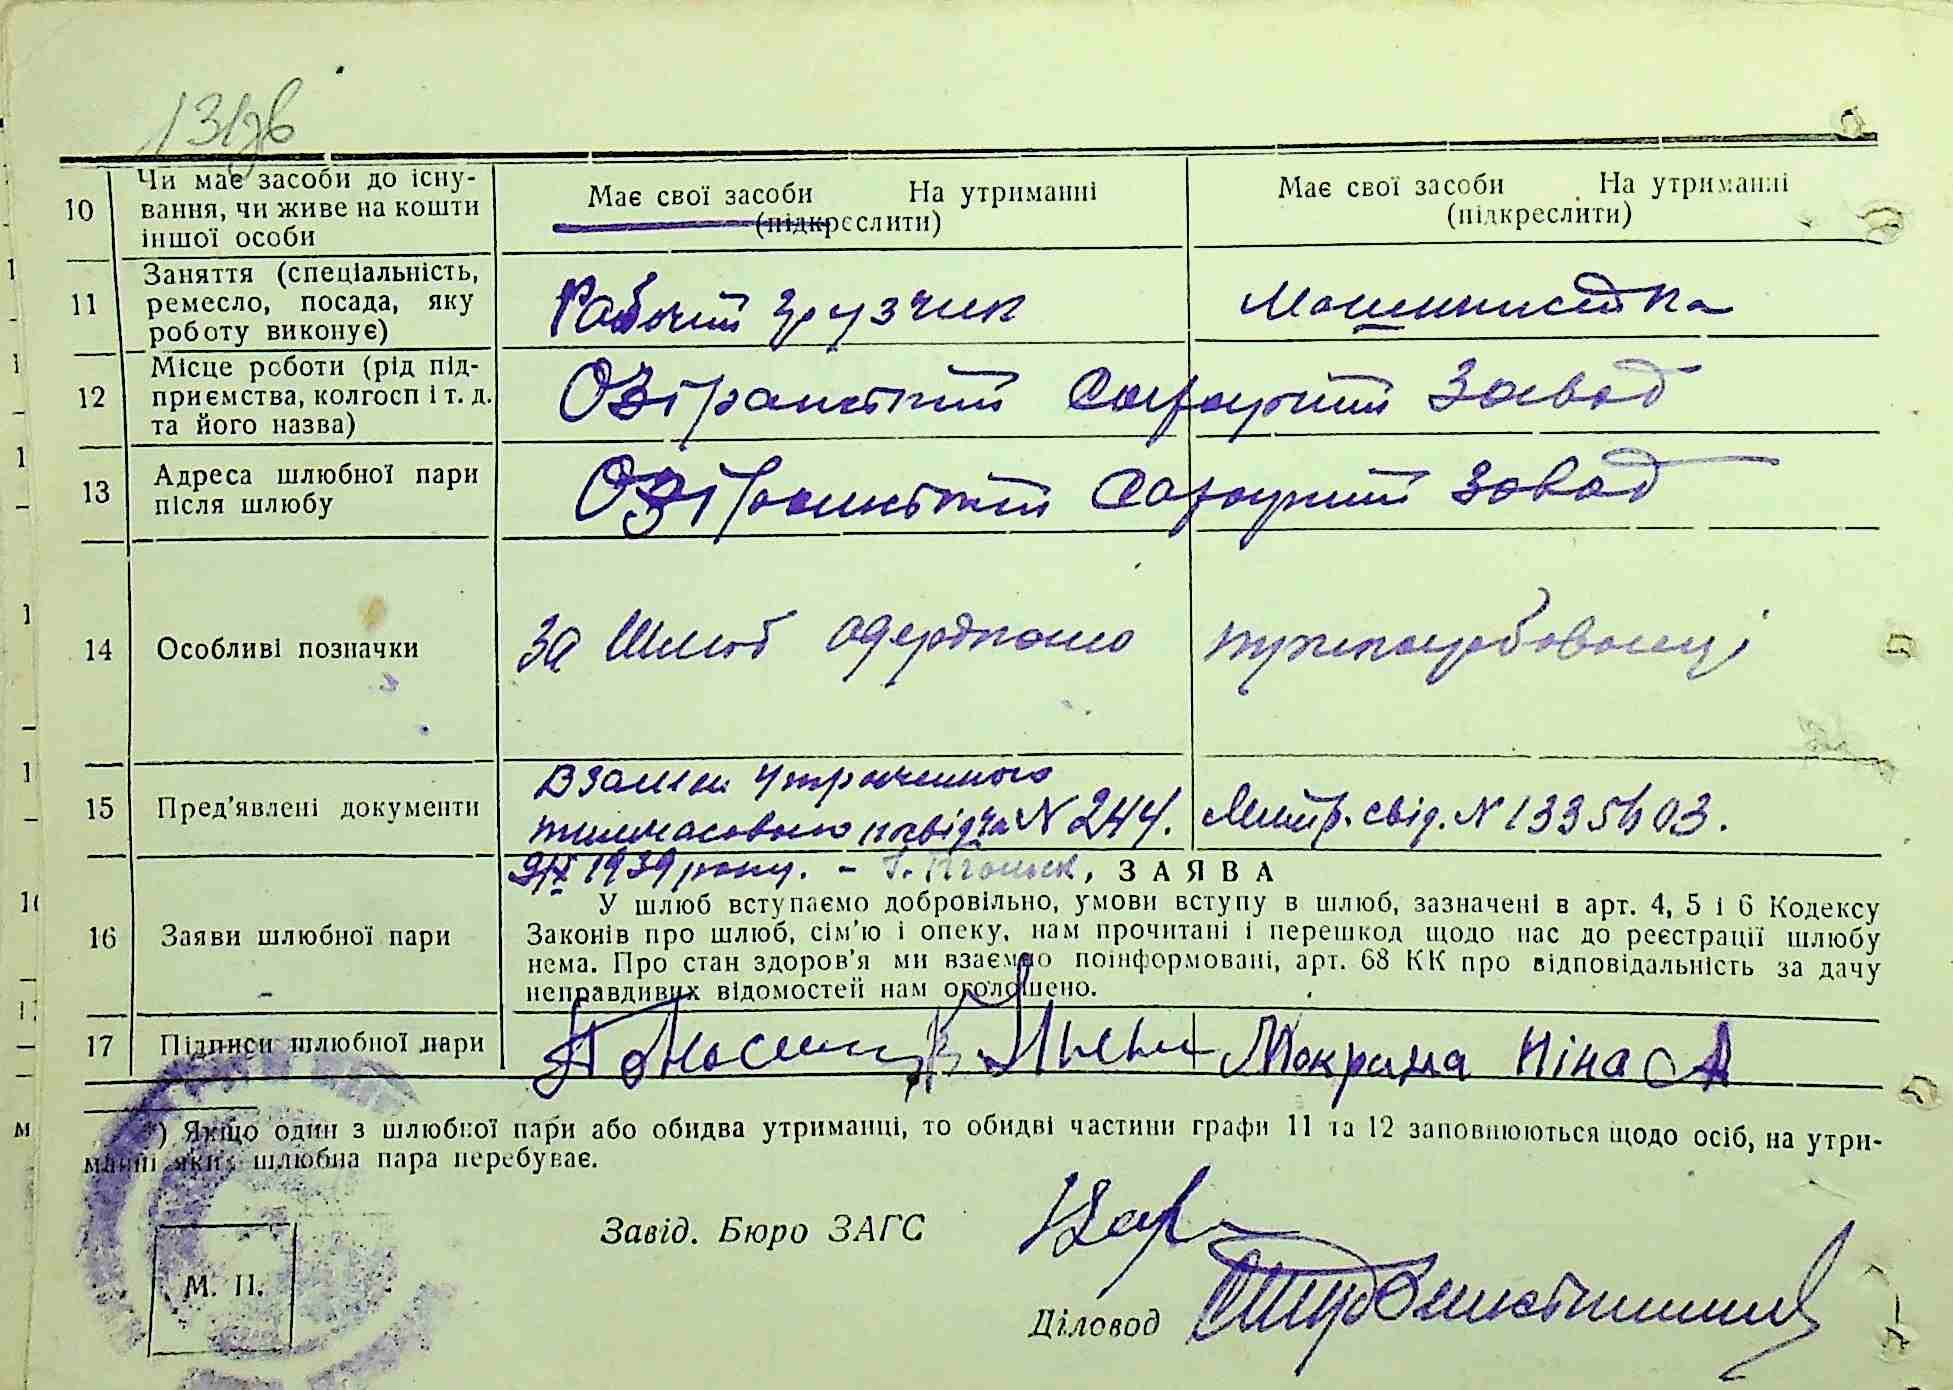 131зв
10 Чи має засоби до існу-
вання, чи живе на кошти
іншої особи
Має свої засоби На утриманні
(підкреслити)
Має свої засоби На утриманні
(підкреслити)
11 Заняття (спеціальність,
ремесло, посада, яку
роботу виконує)
Рабочий грузчик
Машинистка
12 Місце роботи (рід під-
приємства, колгосп і т. д.
та його назва)
Озірянський Сахарний Завод
13 Адреса шлюбної пари
після шлюбу
Озірянський Сахарний Завод
14 Особливі позначки
За Шлюб одержано
15 Пред'явлені документи
Взамен утраченного
тимчасового посвідча N 244.
9/IX 1939 року. -
Метр. свід. N
16 Заяви шлюбної пари
ЗАЯВА
У шлюб вступаємо добровільно, умови вступу в шлюб, зазначені в арт. 4, 5 і 6 Кодексу
Законів про шлюб, сім'ю і опеку, нам прочитані і перешкод щодо нас до реєстрації шлюбу
нема. Про стан здоров'я ми взаємно поінформовані, арт. 68 КК про відповідальність за дачу
неправдивих відомостей нам оголошено.
17 Підписи шлюбної пари
Мокрина Ніна А
*) Якщо один з шлюбної пари або обидва утриманці, то обидві частини графи 11 та 12 заповнюються щодо осіб, на утри-
манні яких шлюбна пара перебуває.
Завід. Бюро ЗАГС
М. П.
Діловод